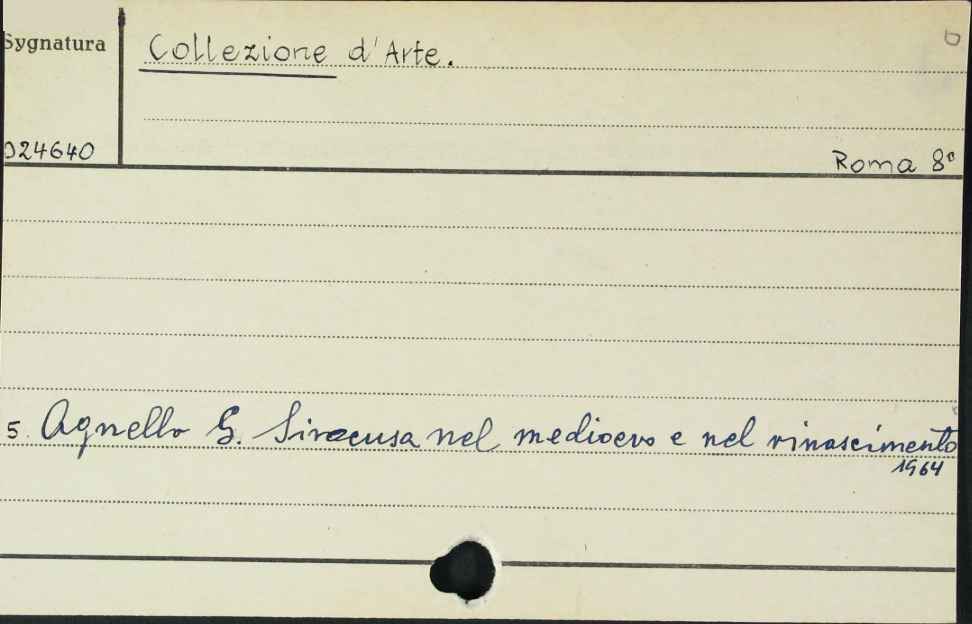 Sygnatura
Collezione d'Arte.
024640
Roma 8°
5. Agnello G. Siracusa nel medioevo e nel rinascimento
1964